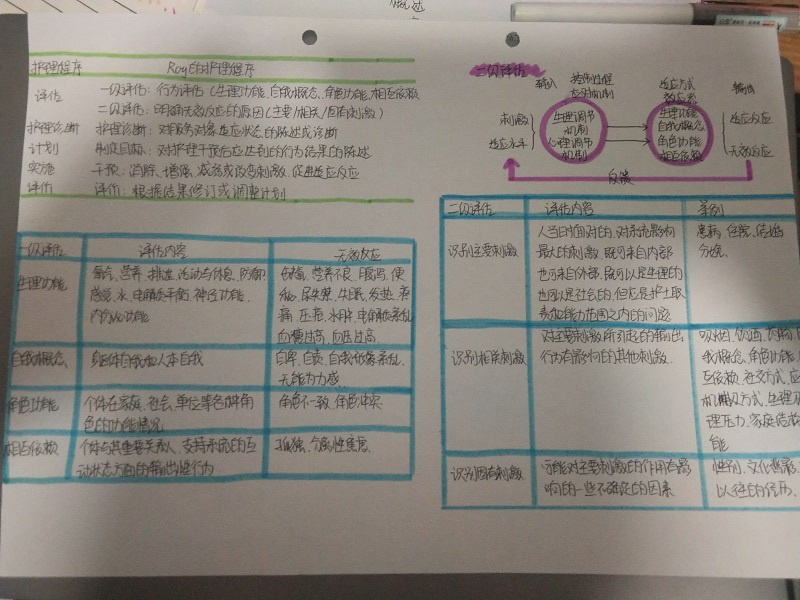 概述
护理程序 Roy的护理程序
评估 一级评估：行为评估（生理功能，自我概念，角色功能，相互依赖
二级评估：明确无效反应的原因（主要/相关/固有刺激）
护理诊断 护理诊断：对服务对象适应状态的陈述或诊断
计划 制定目标：对护理干预后应达到的行为结果的陈述
实施 干预：消除、增强、减弱或改变刺激，促进适应反应
评价 评价：根据结果修订或调整计划
一级评估 评估内容 无效反应
生理功能 氧合、营养、排泄、活动与休息、防御、
感觉、水、电解质平衡、神经功能、
内分泌功能
缺氧、营养不良、腹泻、便
秘、尿失禁、失眠、发热、疼
痛、压疮、水肿、电解质紊乱
血糖过高、血压过高
自我概念 躯体自我和人本自我
自卑、自责、自我形象紊乱、
无能为力感
角色功能 个体在家庭、社会、单位等各种角
色的功能情况
角色不一致、角色冲突
相互依赖 个体与其重要关系人、支持系统的互
动状态方面的输出性行为
孤独、分离性焦虑
二级评估
输入 控制过程 适应方式 输出
应对机制 效应器
刺激 生理调节 生理功能 适应反应
机制 自我概念
适应水平 心理调节 角色功能 无效反应
机制 相互依赖
反馈
二级评估 评估内容 举例
识别主要刺激 人当时面对的，对系统影响
最大的刺激，既可来自内部
也可来自外部，既可以是生理的
也可以是社会的，但应是护士职
责和能力范围之内的问题
患病、住院、结婚
分娩
识别相关刺激 对主要刺激所引起的输出
行为有影响的其他刺激
吸烟、饮酒、
我概念、角色功能、
互依赖、社交方式、应
理压力、家庭结构
能
识别固有刺激 可能对主要刺激的作用有影
响的一些不确定的因素
性别、文化
以往的经历